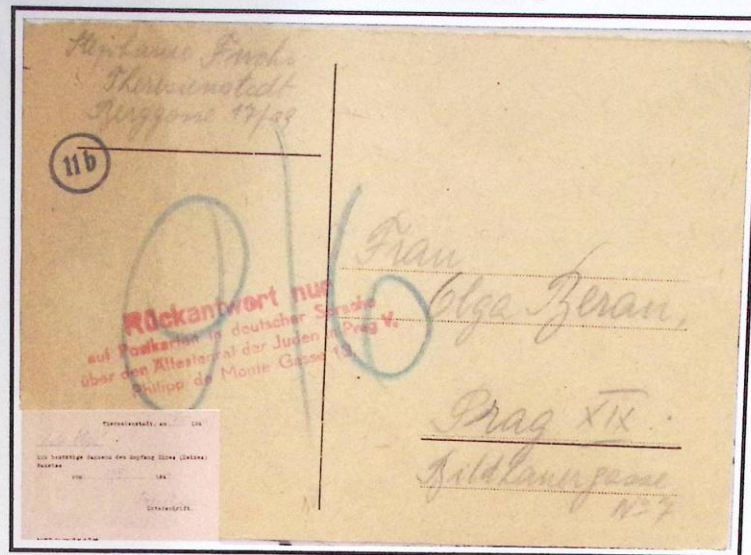 Stephanie Fuchs
Theresienstadt
Berggasse 17/
11b
Rückantwort nur
auf Postkarten in deutscher Sprache
über den Ältestenrat der Juden Prag V.
Philipp de Monte Gasse 18
Frau
Olga Beran,
Prag XIX.
Bildhauergasse
No 7
Theresienstadt, am 194
Ich bestätige dankend den Empfang Ihres (Deines)
Paketes
vom 194
Unterschrift.